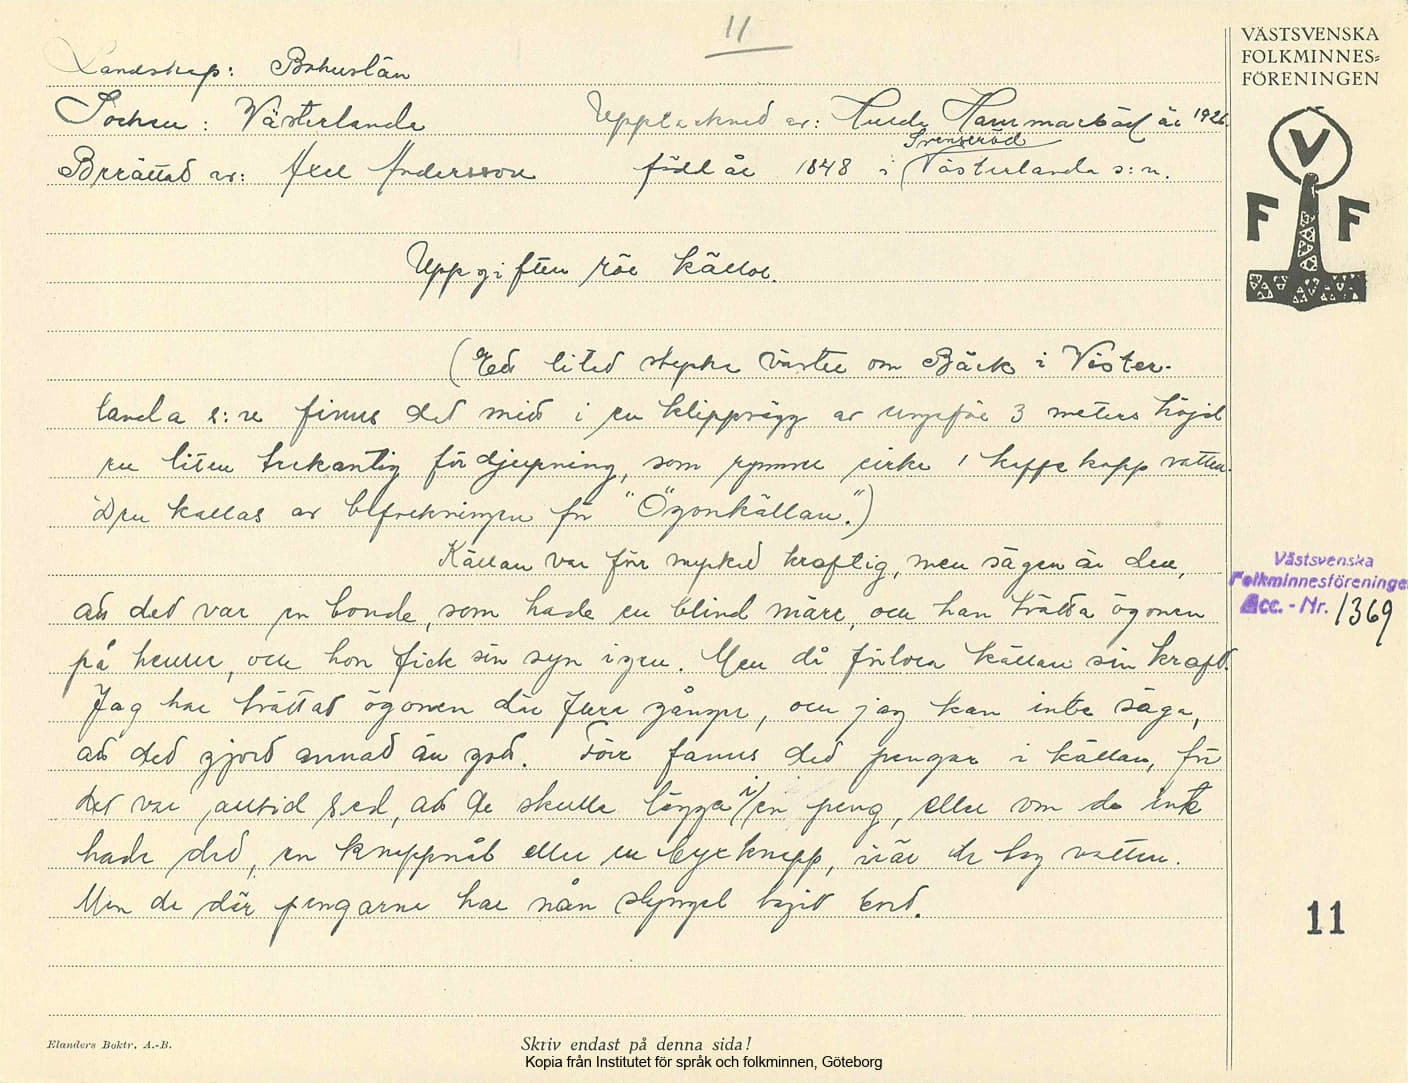 11
VÄSTSVENSKA
FOLKMINNES=
FÖRENINGEN
Landskap: Bohuslän
Socken: Västerlanda Upptecknad av: Hulda Hammarbäck år 1926.
Svenseröd
Berättad av: Axel Andersson född år 1848 i Västerlanda s:n.
V
F F
Uppgiften rör källor.
(Ett litet stycke väster om Bäck i Väster-
landa s:n finns det mitt i en klippvägg av ungefär 3 meters höjd
en liten trekantig fördjupning, som rymmer cirka 1 kaffekopp vatten.
Den kallas av befolkningen för "Ögonkällan".)
Källan var förr mycket kraftig, men sägen är den,
att det var en bonde, som hade en blind märr, och han tvätta ögonen
på henne, och hon fick sin syn igen. Men då förlora källan sin kraft.
Jag har tvättat ögonen där flera gånger, och jag kan inte säga,
att det gjort annat än gott. Förr fanns det pengar i källan, för
det var alltid sed, att de skulle lägga i en peng, eller om de inte
hade det, en knappnål eller en byxknapp, när de tog vatten.
Men de där pengarna har nån slyngel tagit bort.
Västsvenska
Folkminnesföreningen
Acc. - Nr. 1369
11
Elanders Boktr. A.-B.
Skriv endast på denna sida!
Kopia från Institutet för språk och folkminnen, Göteborg